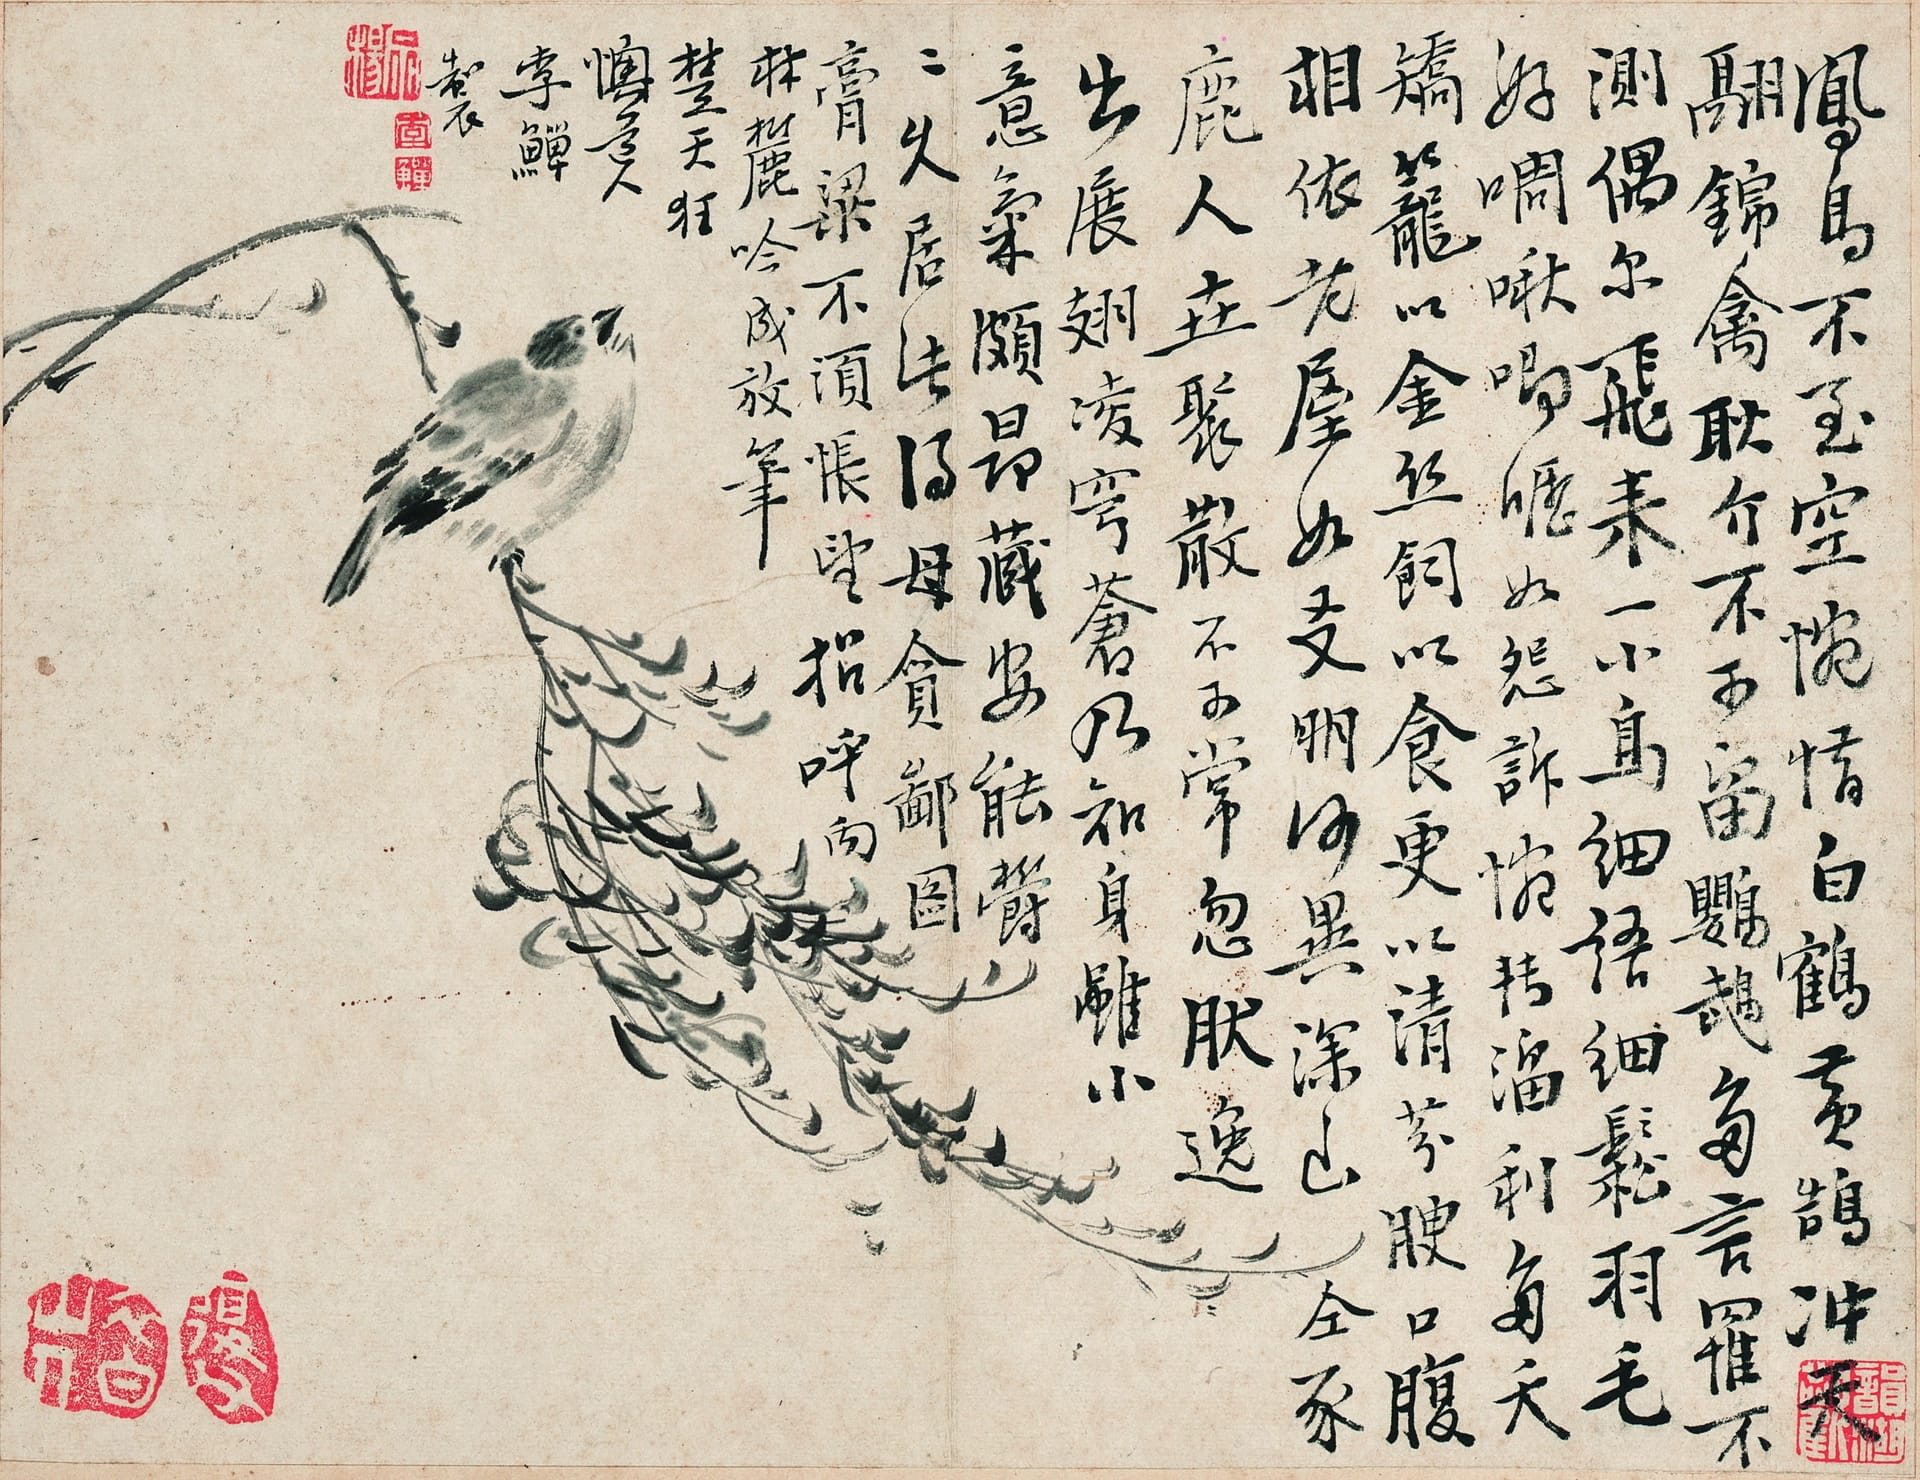 鳳鳥不至空惋惜白鶴黃鵠沖天
翮錦禽耿介不可留鸚鵡多言羅不
測偶尔飛來一小鳥細語細細鬆羽毛
好啁啾唧喔如怨訴惋轉溜利多夭
矯籠以金丝飼以食更以清芬腴口腹
相依老屋如友朋何異深山仝豕
鹿人生聚散不可常忽然逸
出展翅凌穹蒼乃知身雖小
意氣頗昂藏安能欝
二久居此得母貪鄙图
膏粱不須悵望招呼向
林麓吟成放筆
楚天狂
懊道人
李鱓
製
李
鱓